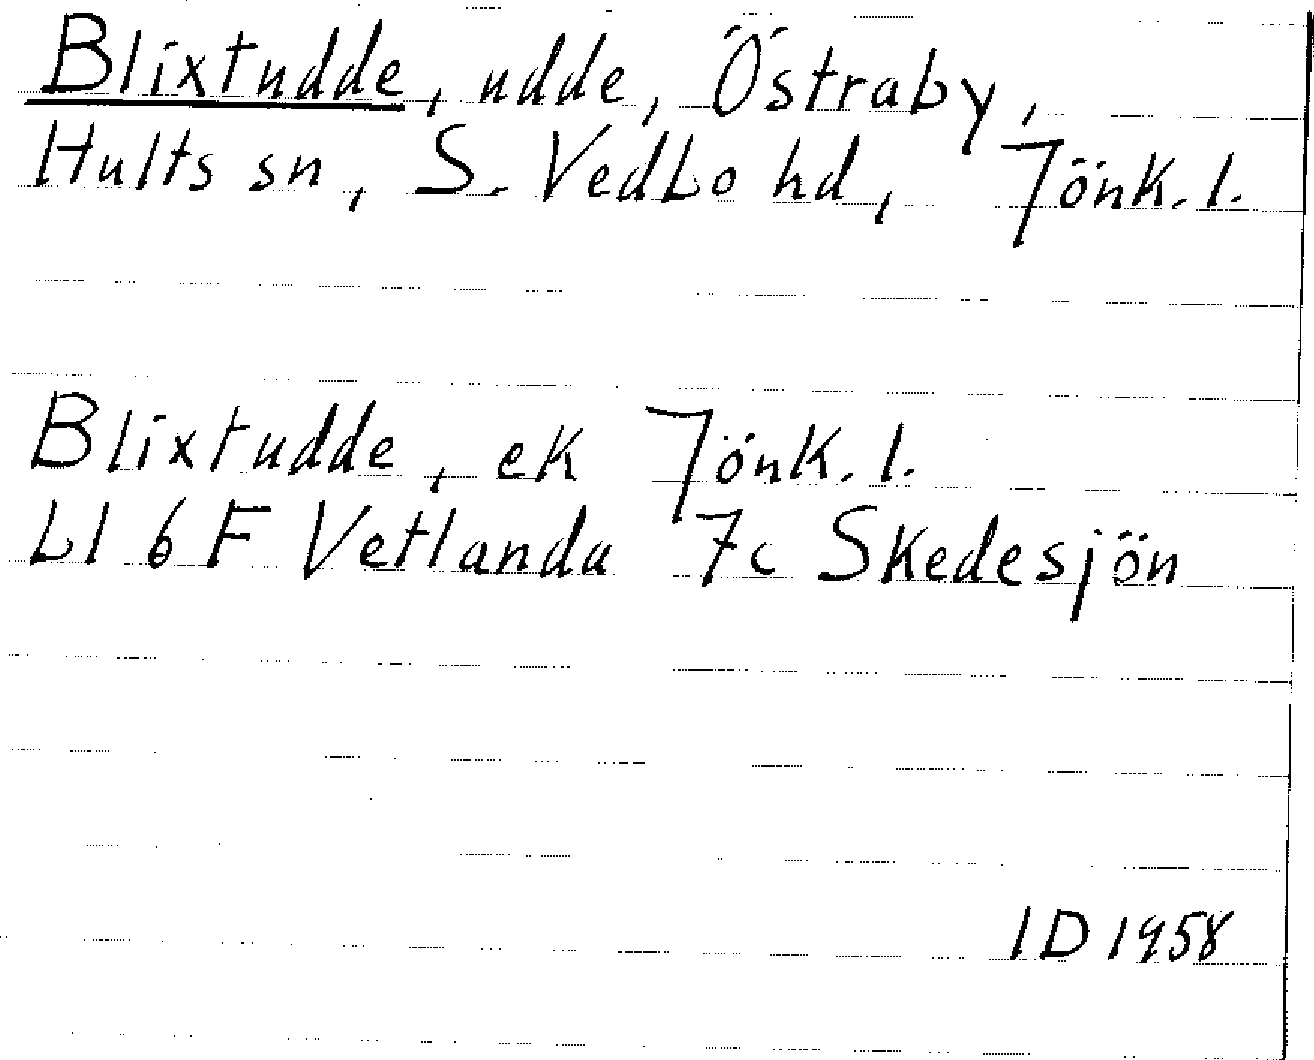 Blixtudde, udde, Östraby,
Hults sn, S. Vedbo hd, Jönk. l.
Blixtudde, ek Jönk. l.
bl 6 F Vetlanda 7c Skedesjön
ID 1958